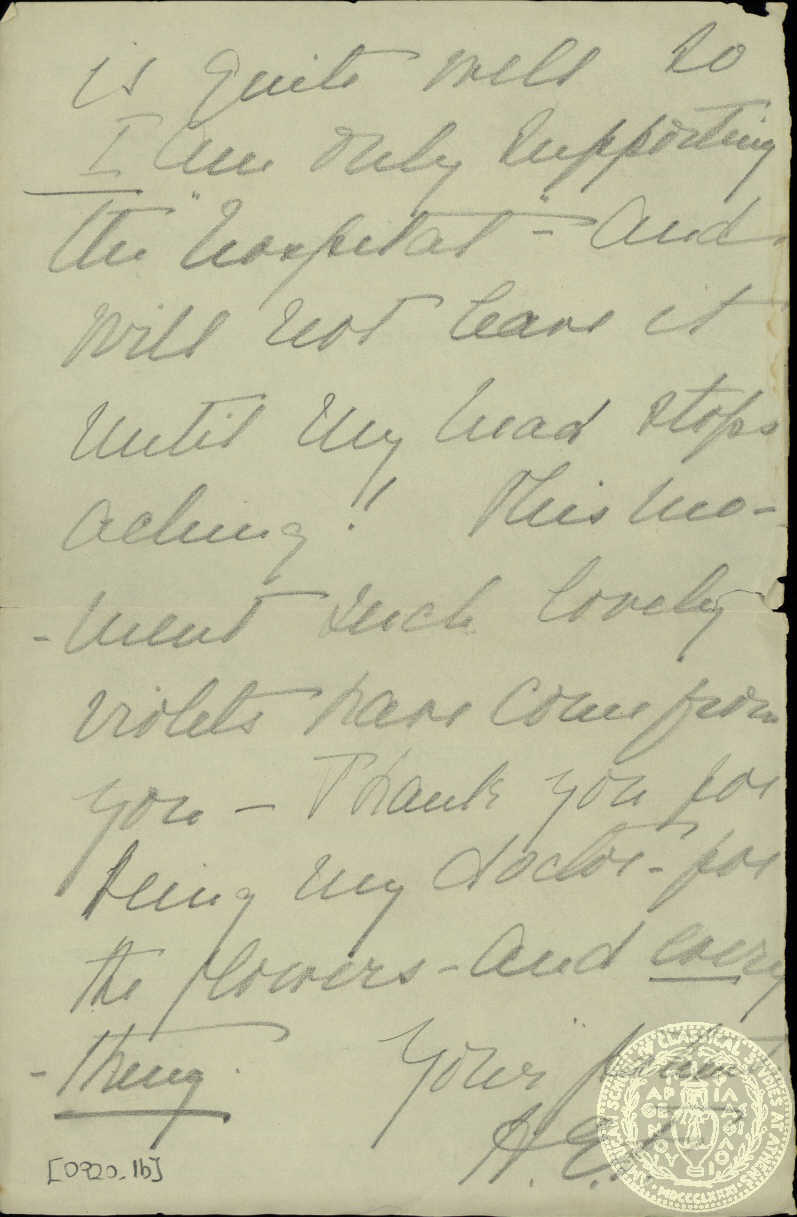 is quite well so
I am only supporting
the "hospital" - and
will not leave it
until my head stops
aching! This mo-
-ment such lovely
violets have come from
you - Thank you for
being my doctor - for
the flowers - and every
-thing. Your
H. E.
[0920_1b]
AMERICAN SCHOOL OF CLASSICAL STUDIES AT ATHENS
MDCCCLXXXI